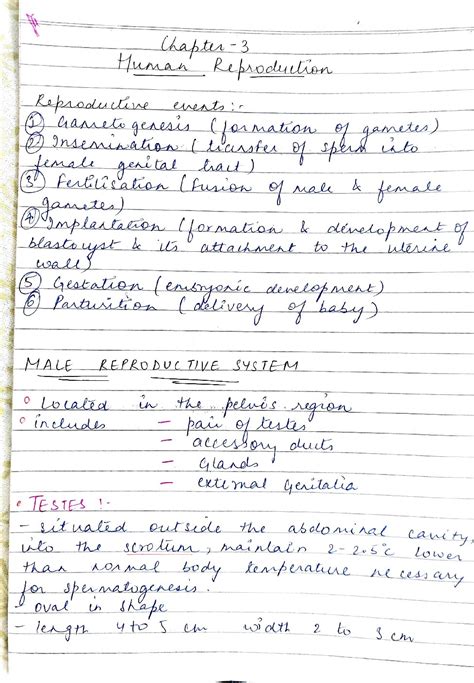 Chapter - 3
Human Reproduction
Reproductive events:-
① Gametogenesis (formation of gametes)
② Insemination (transfer of sperm into
female genital tract)
③ Fertilisation (fusion of male & female
gametes)
④ Implantation (formation & development of
blastocyst & its attachment to the uterine
wall)
⑤ Gestation (embryonic development)
⑥ Parturition (delivery of baby)
MALE REPRODUCTIVE SYSTEM
• Located in the pelvis region
• includes - pair of testes
- accessory ducts
- Glands
- external Genitalia
• TESTES :-
- situated outside the abdominal cavity,
into the scrotum, maintain 2-2.5°C lower
than normal body temperature necessary
for spermatogenesis.
- oval in shape
- length 4 to 5 cm width 2 to 3 cm